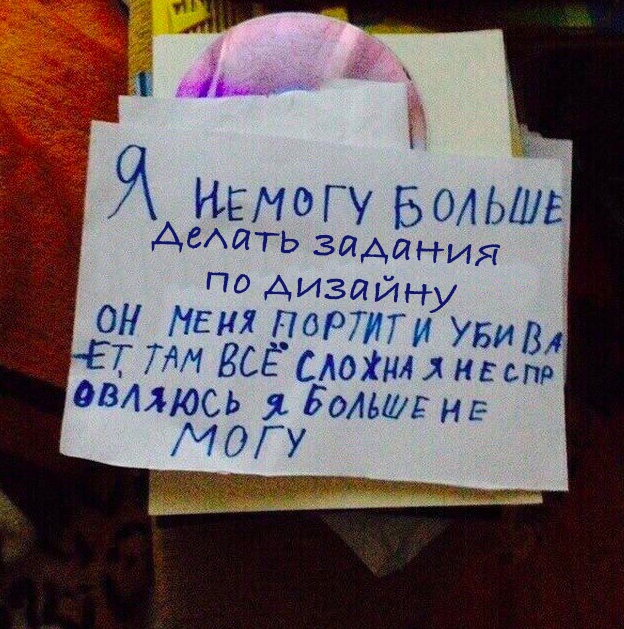 Я НЕМОГУ БОЛЬШЕ
делать задания
по дизайну
ОН МЕНЯ ПОРТИТ И УБИВА
ЕТ, ТАМ ВСЁ СЛОЖНА Я НЕ СПР
ОВЛЯЮСЬ Я БОЛЬШЕ НЕ
МОГУ